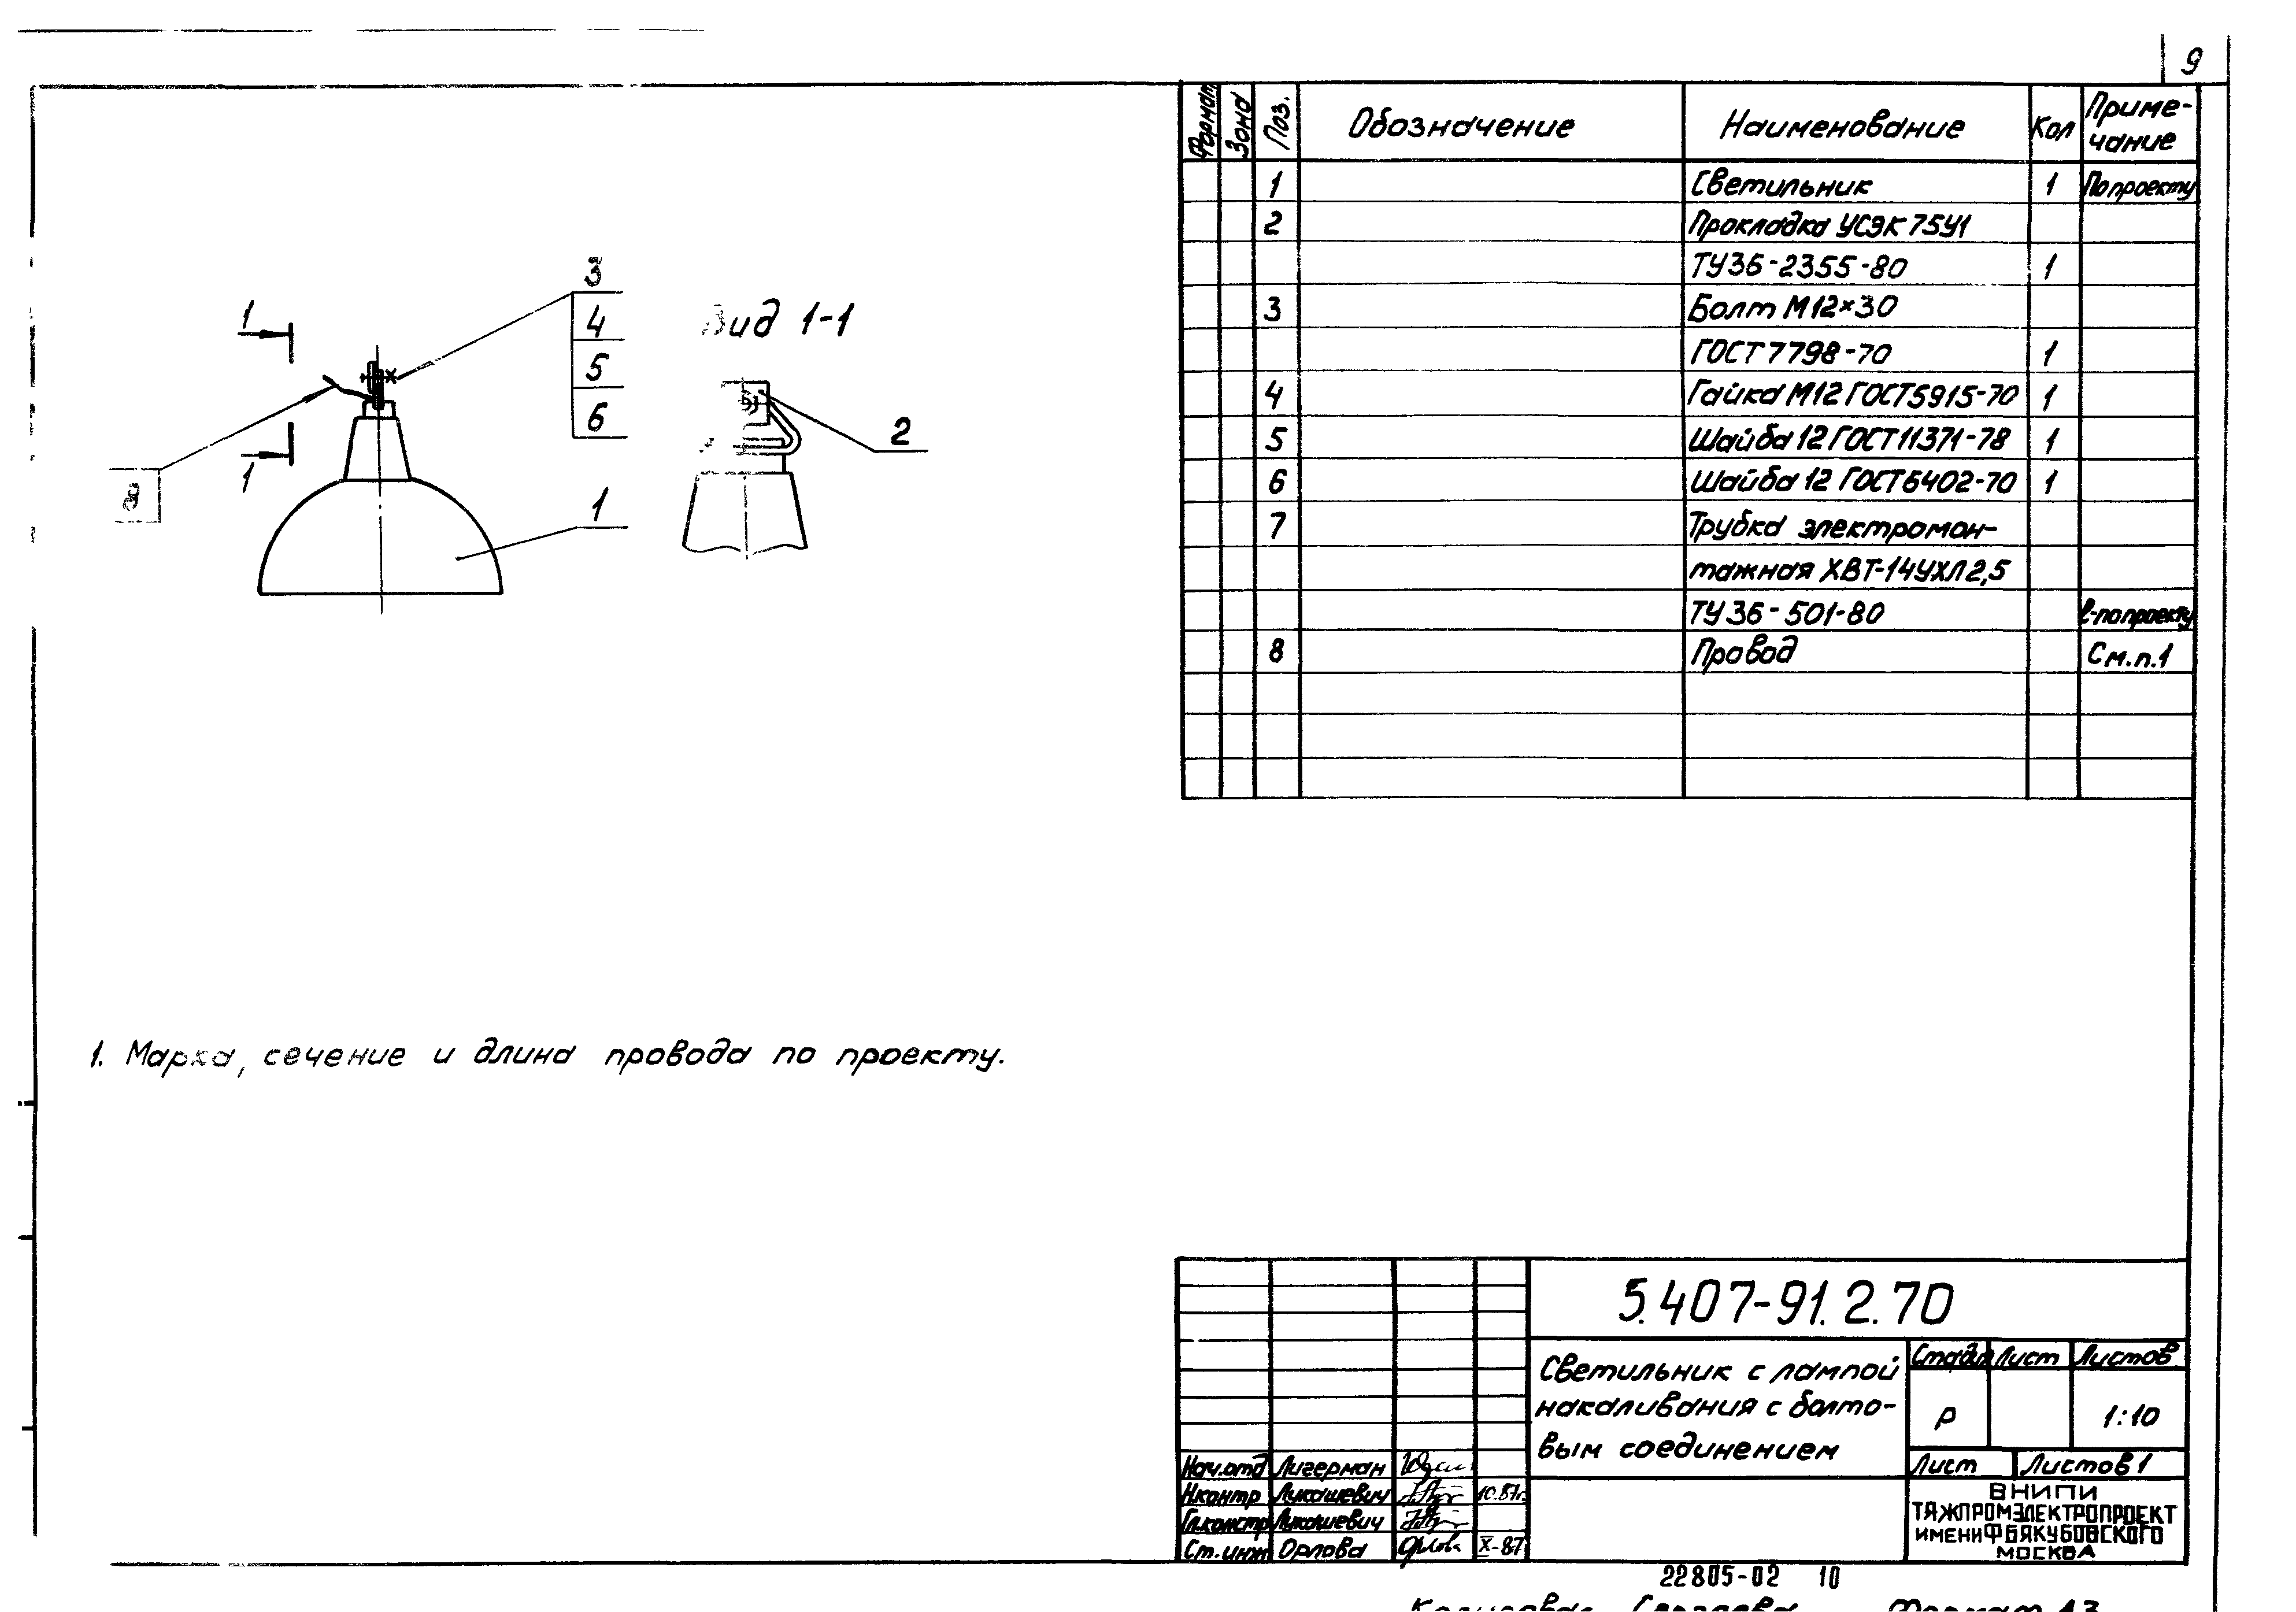 9
Формат Зона Поз. Обозначение Наименование Кол Приме-
чание
1 Светильник 1 По проекту
2 Прокладка УСЭК 75У1
ТУ36-2355-80 1
3 Болт М12×30
ГОСТ7798-70 1
4 Гайка М12 ГОСТ5915-70 1
5 Шайба 12 ГОСТ11371-78 1
6 Шайба 12 ГОСТ6402-70 1
7 Трубка электромон-
тажная ХВТ-14УХЛ2,5
ТУ36-501-80 ℓ-по проекту
8 Провод См.п.1
3
4
5
6
1
1
1
Вид 1-1
2
1. Марка, сечение и длина провода по проекту.
5.407-91.2.70
Светильник с лампой
накаливания с болто-
вым соединением
Стадия Лист Листов
Р 1:10
Лист Листов 1
ВНИПИ
ТЯЖПРОМЭЛЕКТРОПРОЕКТ
ИМЕНИ Ф Б ЯКУБОВСКОГО
МОСКВА
Нач.отд Лигерман
Н.контр Лукашевич 10.87г.
Гл.констр Лукашевич
Ст.инж Орлова Орлова X-87
22805-02 10